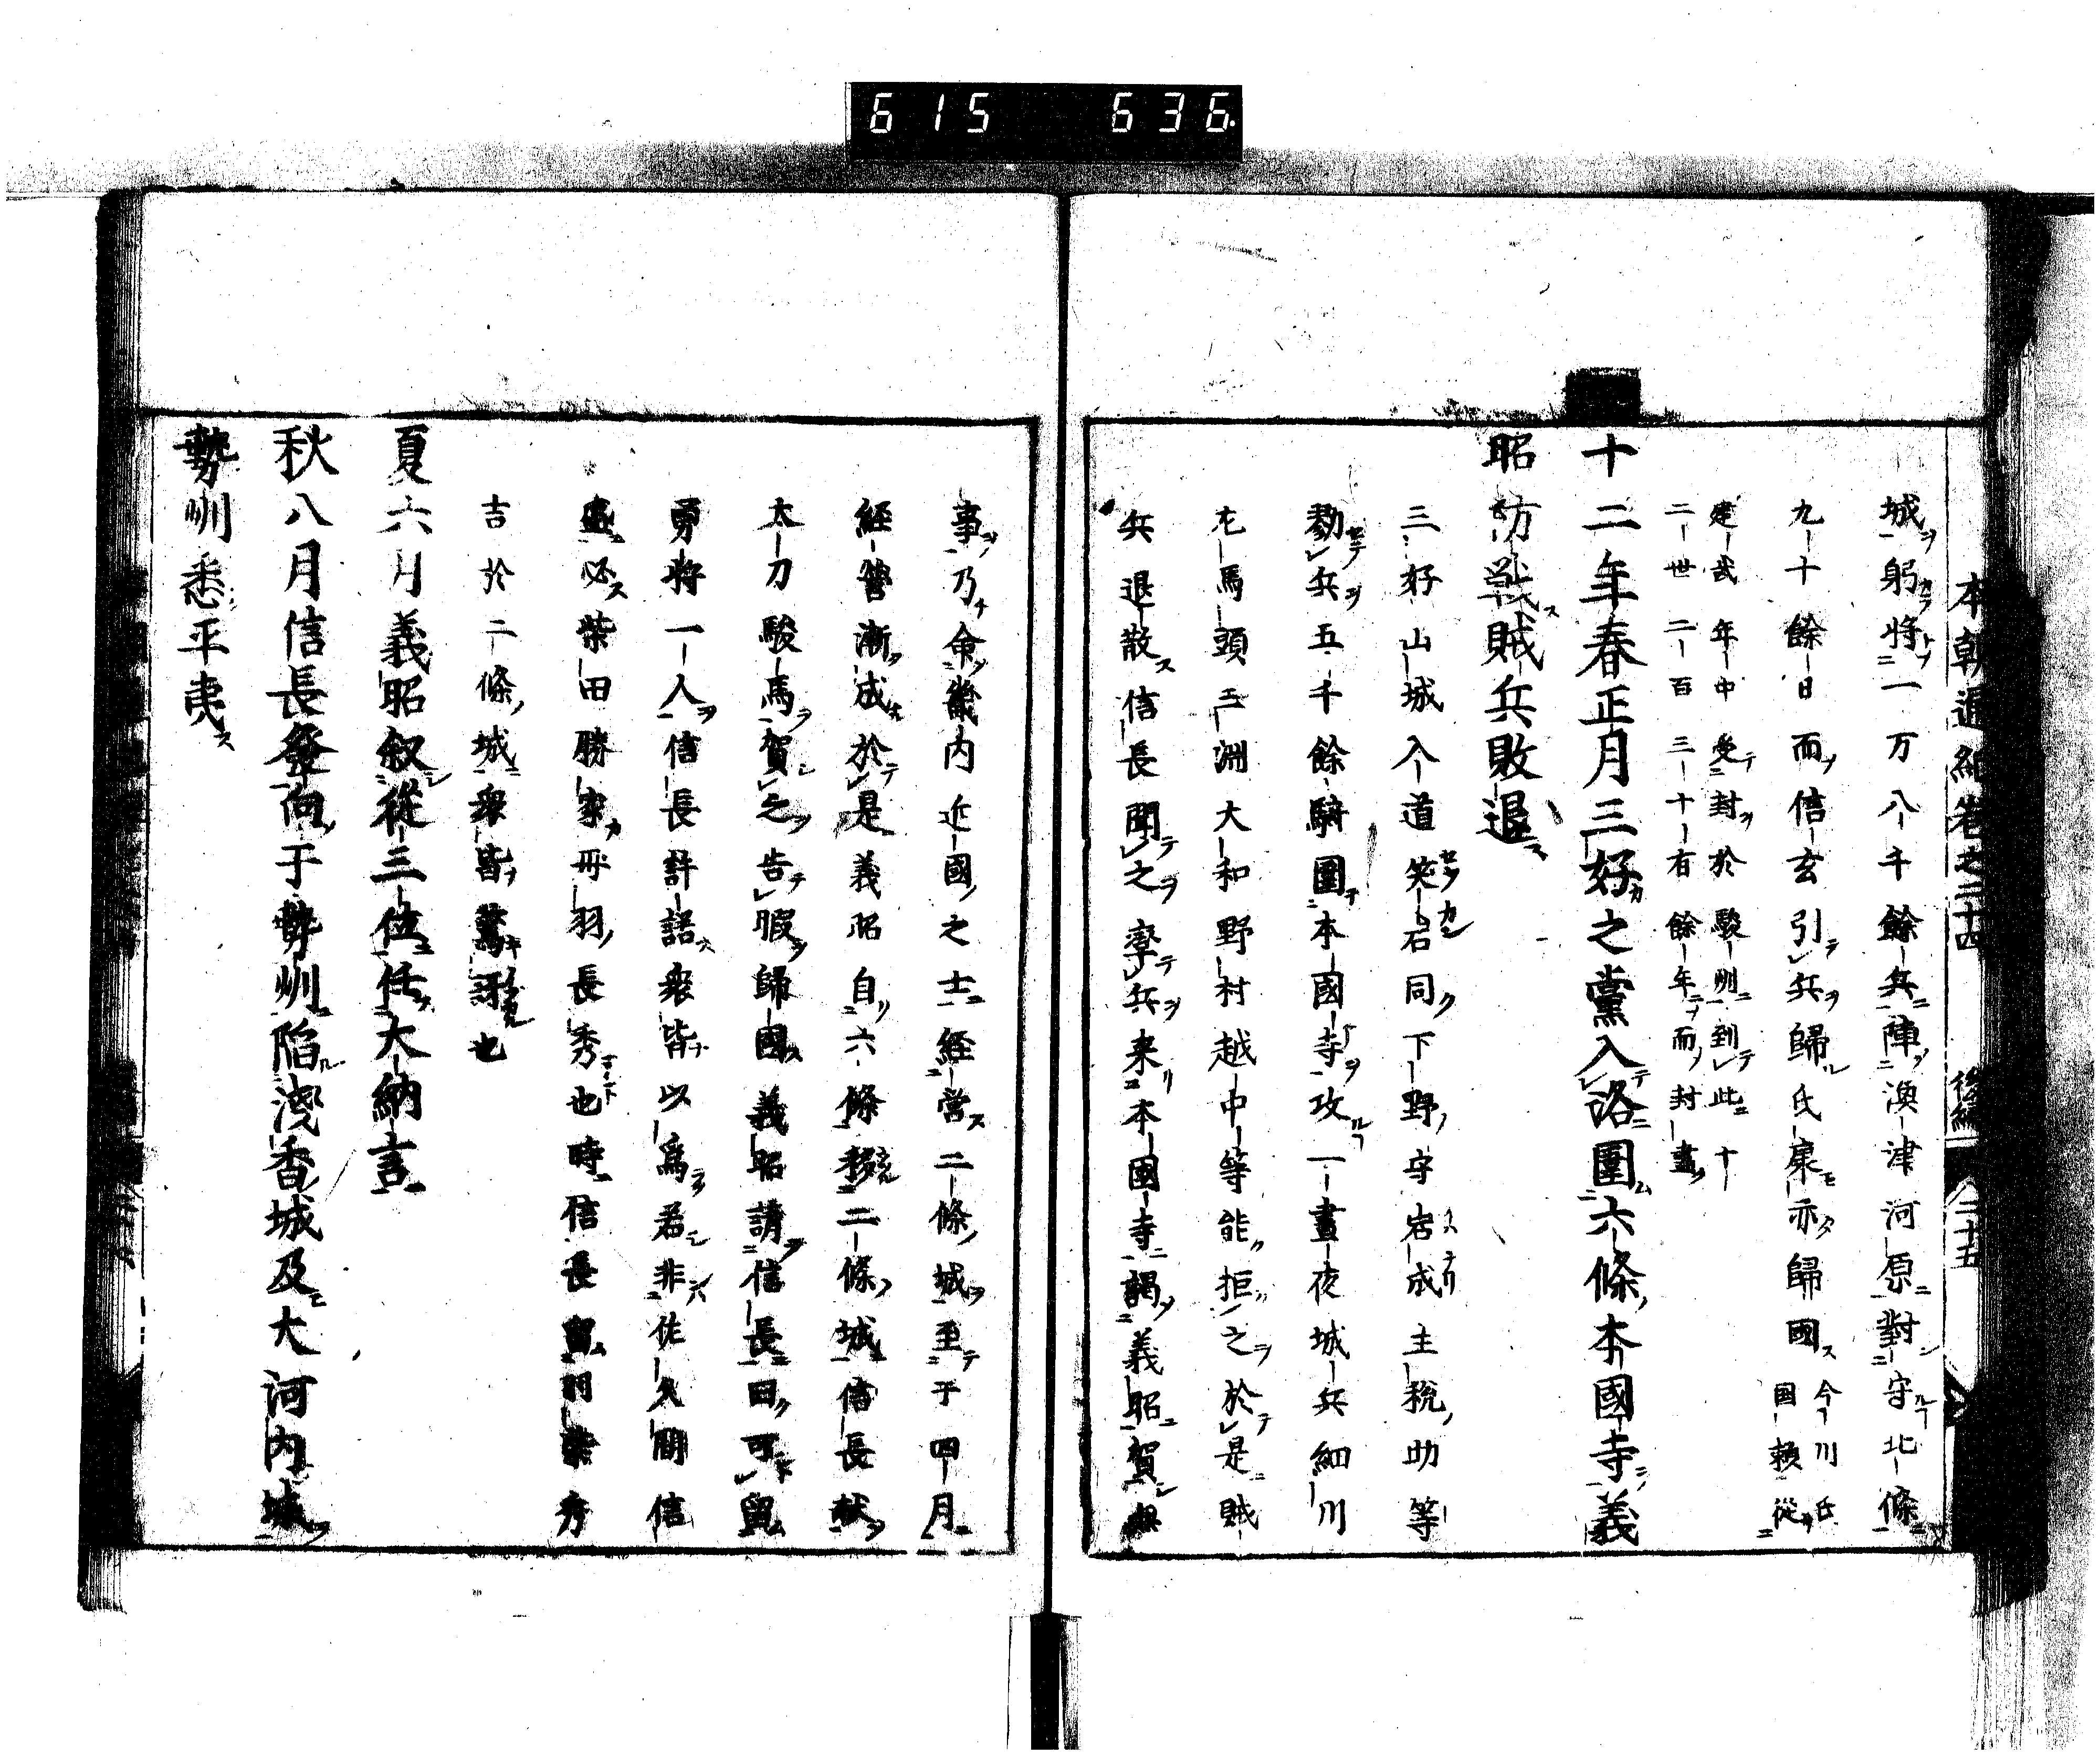 615 636
本朝通紀卷之二十四 後編 二十五
城躬將一万八千餘兵陣渙津河原對守北條
九十餘日而信玄引兵歸氏康亦歸國 今川氏国頼從
建武年中受封於駿州到此十
二世二百三十有餘年而封盡
十二年春正月三好之黨入洛圍六條本國寺義
昭防戰賊兵敗退
三好山城入道笑岩同下野守岩成主税助等
勠兵五千餘騎圍本國寺攻一晝夜城兵細川
左馬頭三淵大和野村越中等能拒之於是賊
兵退散信長聞之率兵来本國寺謁義昭賀
事乃命畿内近國之士経営二條城至于四月
経營漸成於是義昭自六條移二條城信長献
太刀駿馬賀之告暇歸國義昭請信長曰可留
勇將一人信長許諾衆皆以爲若非佐久間信
盛必柴田勝家丹羽長秀也時信長留羽柴秀
吉於二條城衆皆驚訝也
夏六月義昭叙從三位任大納言
秋八月信長發向于勢州陷淺香城及大河内城
勢州悉平夷